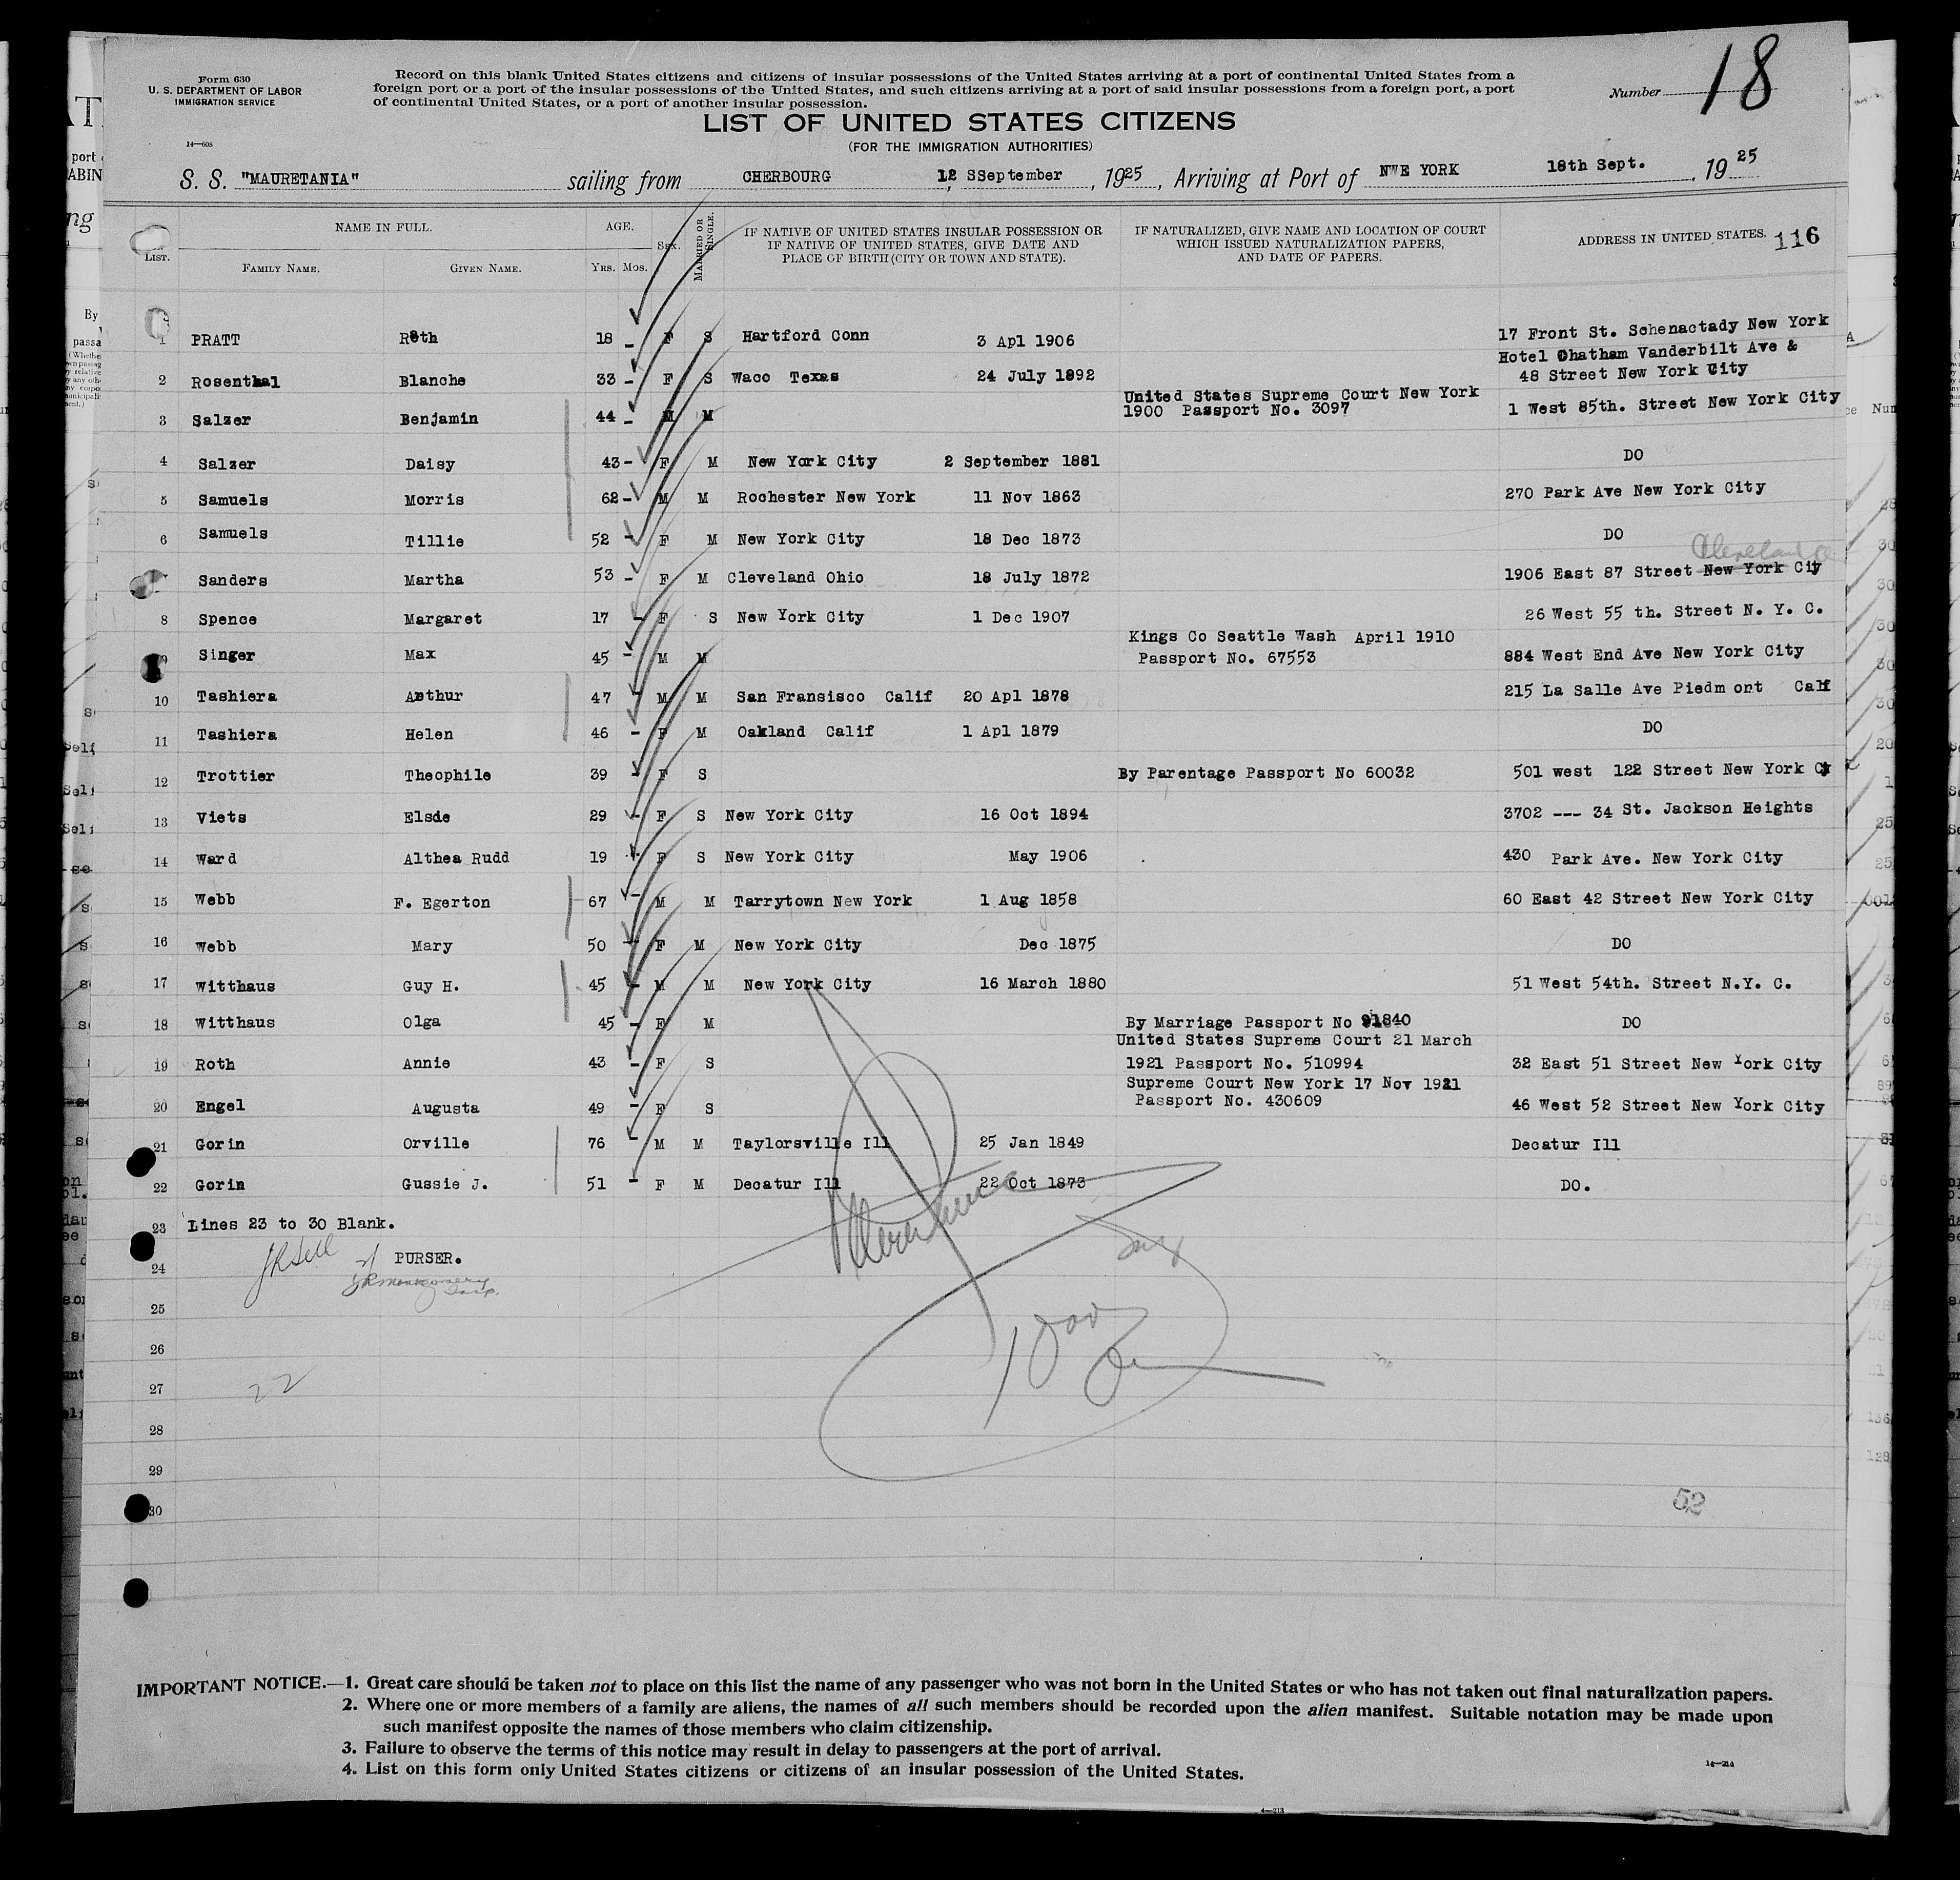 Form 630
U. S. DEPARTMENT OF LABOR
IMMIGRATION SERVICE
14—608
Record on this blank United States citizens and citizens of insular possessions of the United States arriving at a port of continental United States from a
foreign port or a port of the insular possessions of the United States, and such citizens arriving at a port of said insular possessions from a foreign port, a port
of continental United States, or a port of another insular possession.
Number 18
LIST OF UNITED STATES CITIZENS
(FOR THE IMMIGRATION AUTHORITIES)
S. S. "MAURETANIA" sailing from CHERBOURG 12 SSeptember, 1925, Arriving at Port of NWE YORK 18th Sept., 1925
LIST. NAME IN FULL. AGE. SEX. MARRIED OR SINGLE. IF NATIVE OF UNITED STATES INSULAR POSSESSION OR IF NATIVE OF UNITED STATES, GIVE DATE AND PLACE OF BIRTH (CITY OR TOWN AND STATE). IF NATURALIZED, GIVE NAME AND LOCATION OF COURT WHICH ISSUED NATURALIZATION PAPERS, AND DATE OF PAPERS. ADDRESS IN UNITED STATES. 116
FAMILY NAME. GIVEN NAME. YRS. MOS.
1 PRATT Ruth 18 – F S Hartford Conn 3 Apl 1906 17 Front St. Schenactady New York
Hotel Chatham Vanderbilt Ave &
2 Rosenthal Blanche 33 – F S Waco Texas 24 July 1892 48 Street New York City
United States Supreme Court New York
3 Salzer Benjamin 44 – M M 1900 Passport No. 3097 1 West 85th. Street New York City
4 Salzer Daisy 43 – F M New York City 2 September 1881 DO
5 Samuels Morris 62 – M M Rochester New York 11 Nov 1863 270 Park Ave New York City
6 Samuels Tillie 52 – F M New York City 18 Dec 1873 DO
Cleveland O.
7 Sanders Martha 53 – F M Cleveland Ohio 18 July 1872 1906 East 87 Street New York City
8 Spence Margaret 17 – F S New York City 1 Dec 1907 26 West 55 th. Street N. Y. C.
Kings Co Seattle Wash April 1910
9 Singer Max 45 – M M Passport No. 67553 884 West End Ave New York City
10 Tashiera Arthur 47 – M M San Fransisco Calif 20 Apl 1878 215 La Salle Ave Piedmont Calif
11 Tashiera Helen 46 – F M Oakland Calif 1 Apl 1879 DO
12 Trottier Theophile 39 – F S By Parentage Passport No 60032 501 west 122 Street New York Cy
13 Viets Elsie 29 – F S New York City 16 Oct 1894 3702 --- 34 St. Jackson Heights
14 Ward Althea Rudd 19 – F S New York City May 1906 430 Park Ave. New York City
15 Webb F. Egerton 67 – M M Tarrytown New York 1 Aug 1858 60 East 42 Street New York City
16 Webb Mary 50 – F M New York City Dec 1875 DO
17 Witthaus Guy H. 45 – M M New York City 16 March 1880 51 West 54th. Street N.Y. C.
18 Witthaus Olga 45 – F M By Marriage Passport No 91840 DO
United States Supreme Court 21 March
19 Roth Annie 43 – F S 1921 Passport No. 510994 32 East 51 Street New York City
Supreme Court New York 17 Nov 1921
20 Engel Augusta 49 – F S Passport No. 430609 46 West 52 Street New York City
21 Gorin Orville 76 – M M Taylorsville Ill 25 Jan 1849 Decatur Ill
22 Gorin Gussie J. 51 – F M Decatur Ill 22 Oct 1873 DO.
23 Lines 23 to 30 Blank.
24 PURSER.
25
26
27 22
28
29
30
52
IMPORTANT NOTICE.—1. Great care should be taken not to place on this list the name of any passenger who was not born in the United States or who has not taken out final naturalization papers.
2. Where one or more members of a family are aliens, the names of all such members should be recorded upon the alien manifest. Suitable notation may be made upon
such manifest opposite the names of those members who claim citizenship.
3. Failure to observe the terms of this notice may result in delay to passengers at the port of arrival.
4. List on this form only United States citizens or citizens of an insular possession of the United States.
14—214
4—213